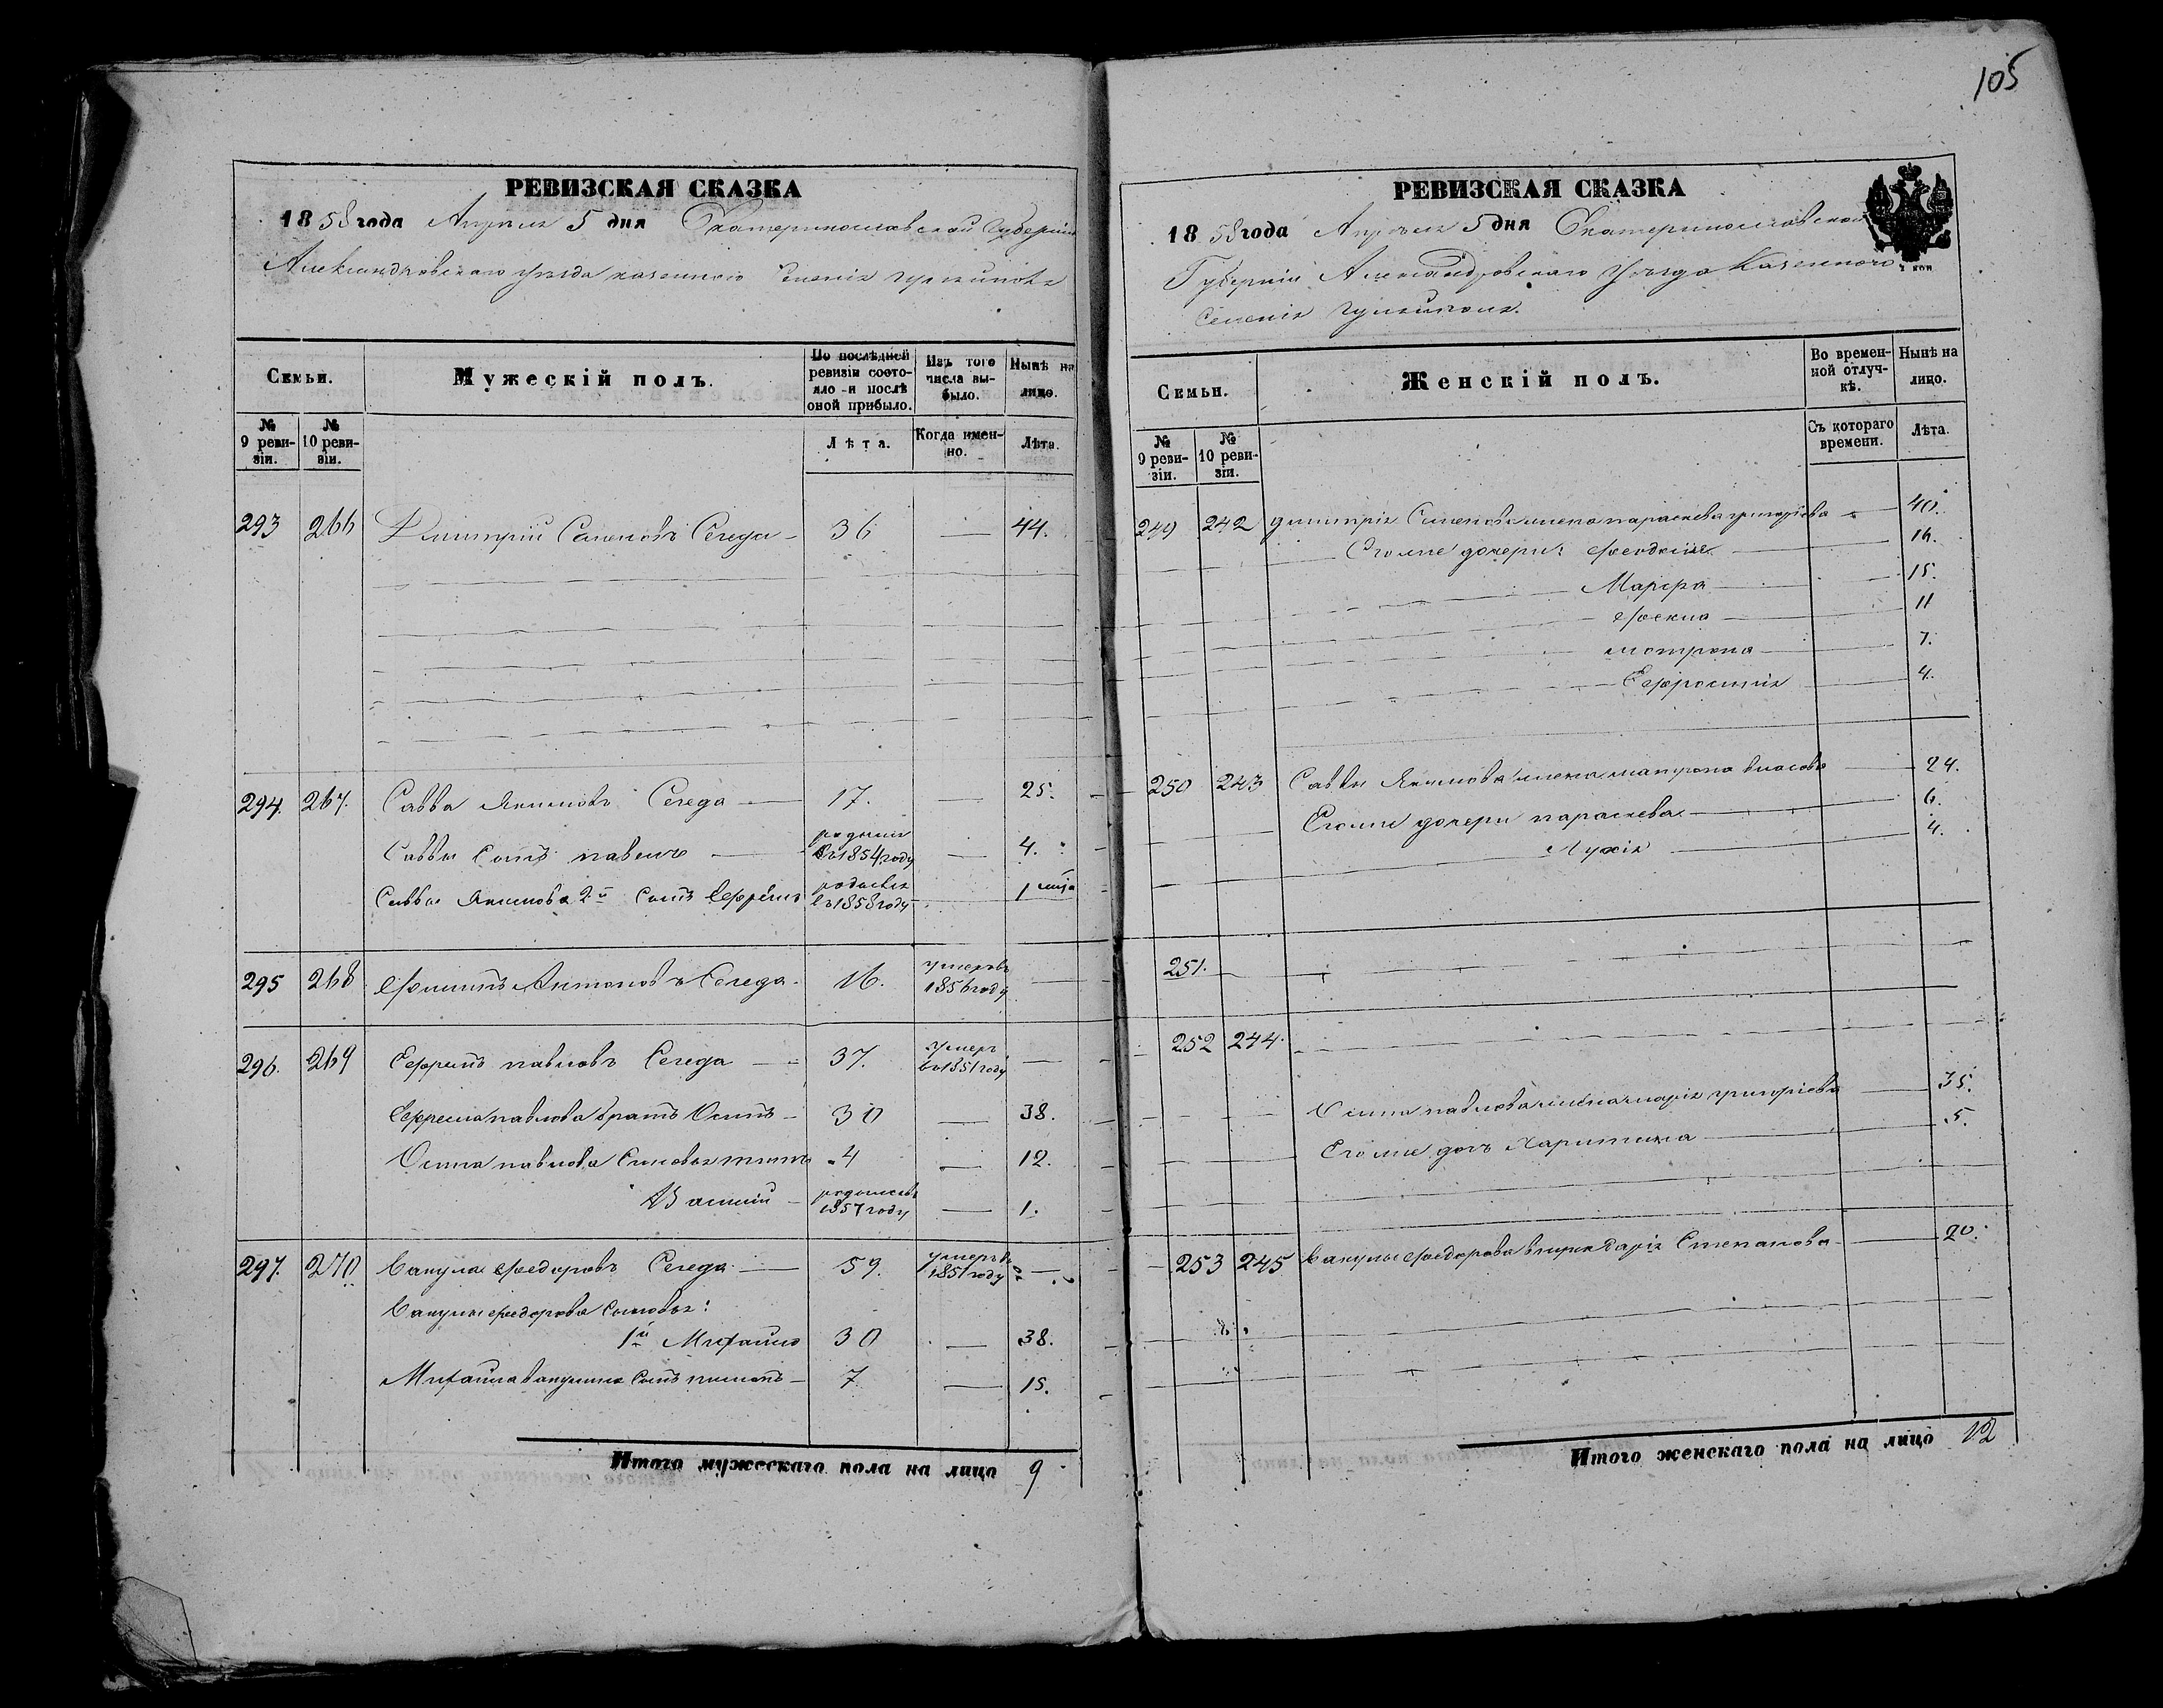 105
РЕВИЗСКАЯ СКАЗКА
1858 года Апреля 5 дня Екатеринославской Губерніи
Александровскаго уезда казеннаго Селенія гуляиполя
Семьи.
Мужескій полъ.
По послѣдней ревизіи состояло и послѣ оной прибыло.
Изъ того числа выбыло.
Нынѣ на лицо.
№ 9 ревизіи.
№ 10 ревизіи.
Лѣта.
Когда именно.
Лѣта.
293 266 Димитрій Семеновъ Середа 36 — 44.
294. 267. Савва Якимовъ Середа 17. — 25.
Саввы Сынъ павелъ родился въ 1854 году — 4.
Саввы Якимова 2й Сынъ Ефремъ родився въ 1858 году — 1
295 268 Филиппъ Антоновъ Середа 16. умеръ въ 1856 году —
296. 269 Ефремъ павловъ Середа 37. умеръ въ 1851 году —
Ефрема павлова братъ Осипъ 30 — 38.
Осипа павлова Сыновья титъ 4 — 12.
Василій родился въ 1857 году — 1.
297. 270 Вакула Федоровъ Середа 59. умеръ въ 1851 году —
Вакулы Федорова Сыновья:
1й Михайло 30 — 38.
Михайла вакулина Сынъ пилипъ 7 — 15.
Итого мужескаго пола на лицо 9
РЕВИЗСКАЯ СКАЗКА
1858 года Апреля 5 дня Екатеринославской
Губерніи Александровскаго Уезда Казеннаго
Селенія гуляиполя.
Семьи.
Женскій полъ.
Во временной отлучкѣ.
Нынѣ на лицо.
№ 9 ревизіи.
№ 10 ревизіи.
Съ котораго времени.
Лѣта.
249 242 димитрія Семенова жена параскева григорієва — 40.
Егоже дочери: Феодосия — 16.
Марфа — 15.
Фекла — 11
мотрона — 7.
Ефросинія — 4.
250 243 Саввы Якимова жена матрона власова — 24.
Егоже дочери параскева — 6.
Лукія — 4.
251.
252 244
Осипа павлова жена марія григорієва — 35.
Егоже дочь Харитина — 5.
253 245 Вакулы Федорова внучка Дарія Степанова — 20.
Итого женскаго пола на лицо 12